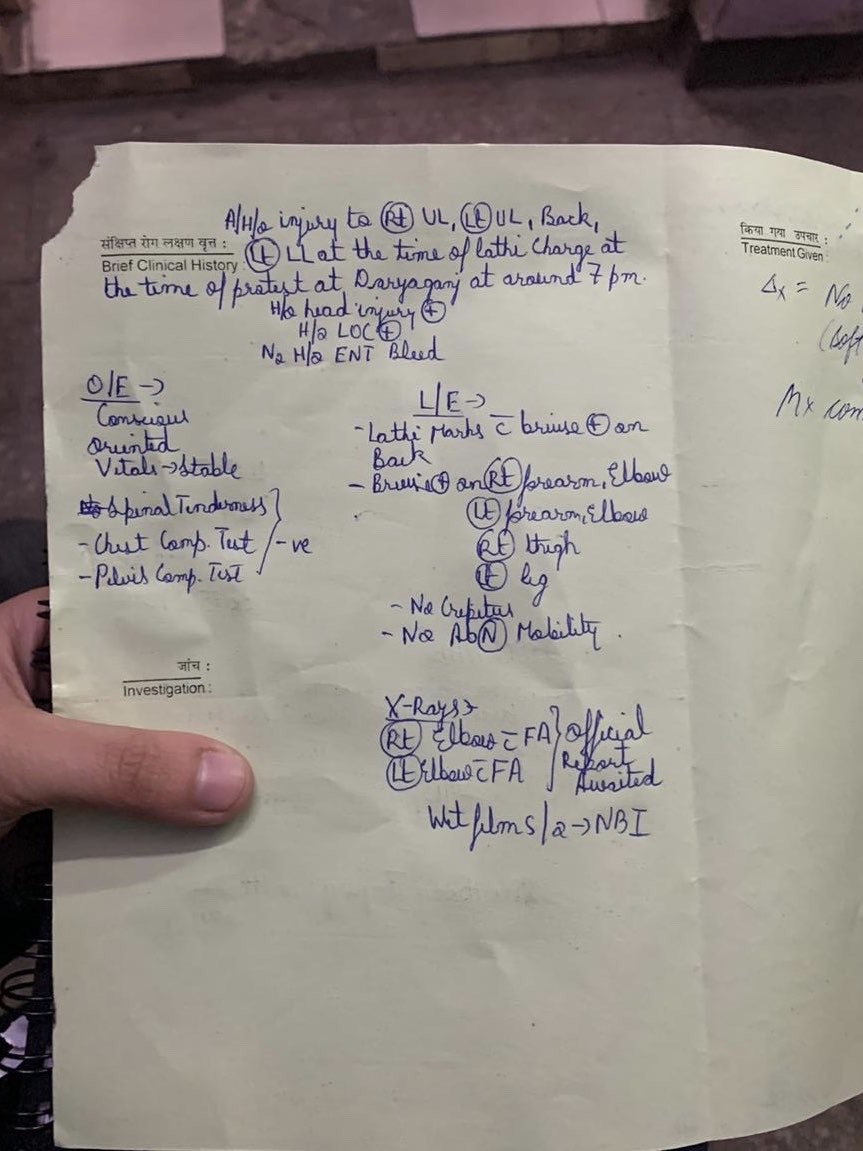 A/H/o injury to (Rt) UL, (Lt) UL, Back,
संक्षिप्त रोग लक्षण वृत्त :
Brief Clinical History :
(Lt) LL at the time of lathi Charge at
the time of protest at Daryaganj at around 7 pm.
H/o head injury (+)
H/o LOC (+)
No H/o ENT Bleed
O/E →
Conscious
Oriented
Vitals → Stable
- Spinal Tenderness
- Chest Comp. Test
- Pelvis Comp. Test
-ve
L/E →
- Lathi Marks c̄ bruise (+) on
Back
- Bruise (+) on (Rt) forearm, Elbow
(Lt) forearm, Elbow
(Rt) thigh
(Lt) leg
- No Crepitus
- No Ab(N) Mobility.
जांच :
Investigation :
X-Rays →
(Rt) Elbow c̄ FA
(Lt) Elbow c̄ FA
Official
Report
Awaited
Wet films/o → NBI
किया गया उपचार :
Treatment Given :
Δx = No
Mx